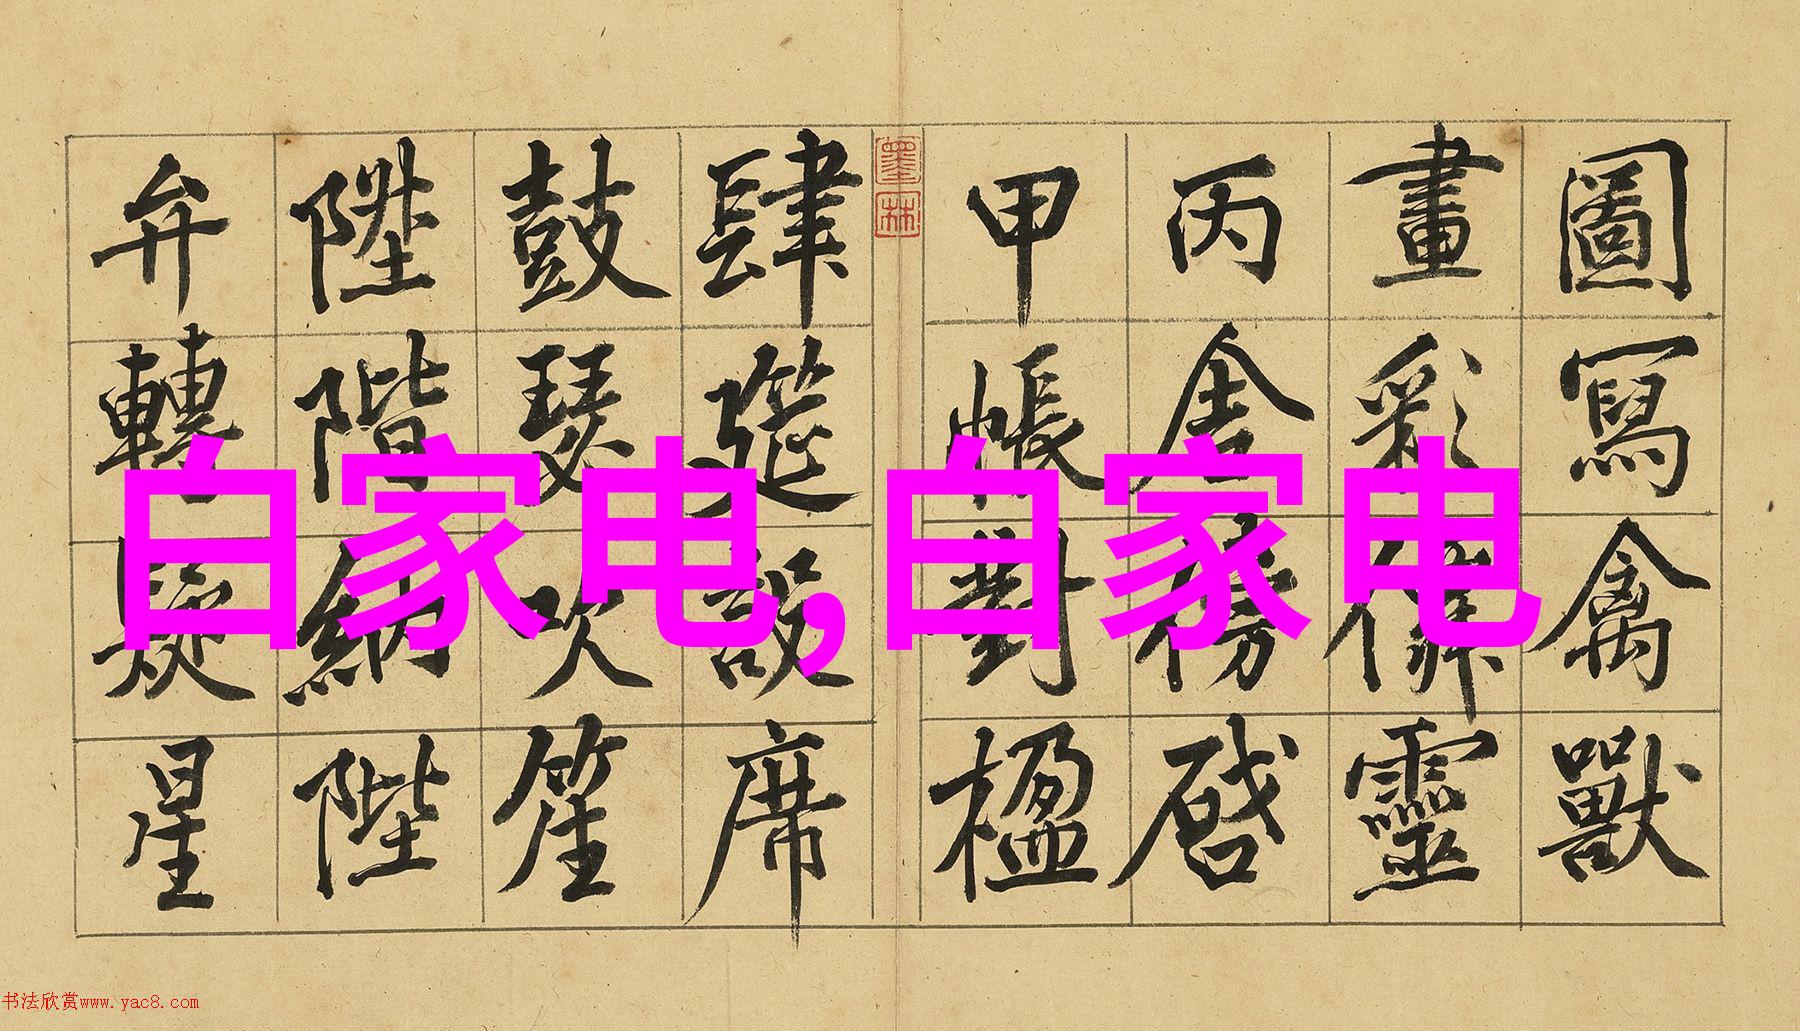 圖寫禽獸
畫彩靈
丙舍傍啓
甲帳對楹
墨林
肆筵設席
鼓瑟吹笙
陞階納陛
弁轉疑星
白家电,白家电
书法欣赏www.yac8.com